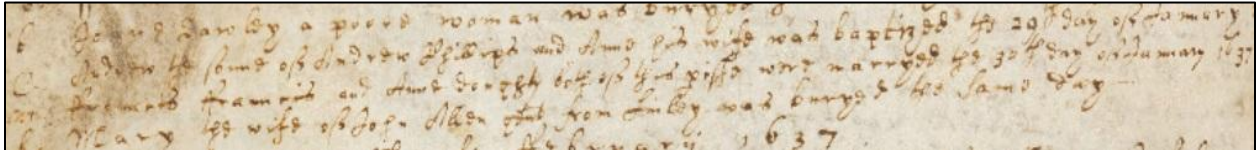 b Joane Hawley a poore woman was buryed
C Andrew the sonne of Andrew Phillips and Anne his wife was baptized the 29th day of January
Frauncis Francis and Anne both of this pishe were marryed the 30th day of January 1637
b Mary the wife of John Allen from was buryed the same day
February 1637